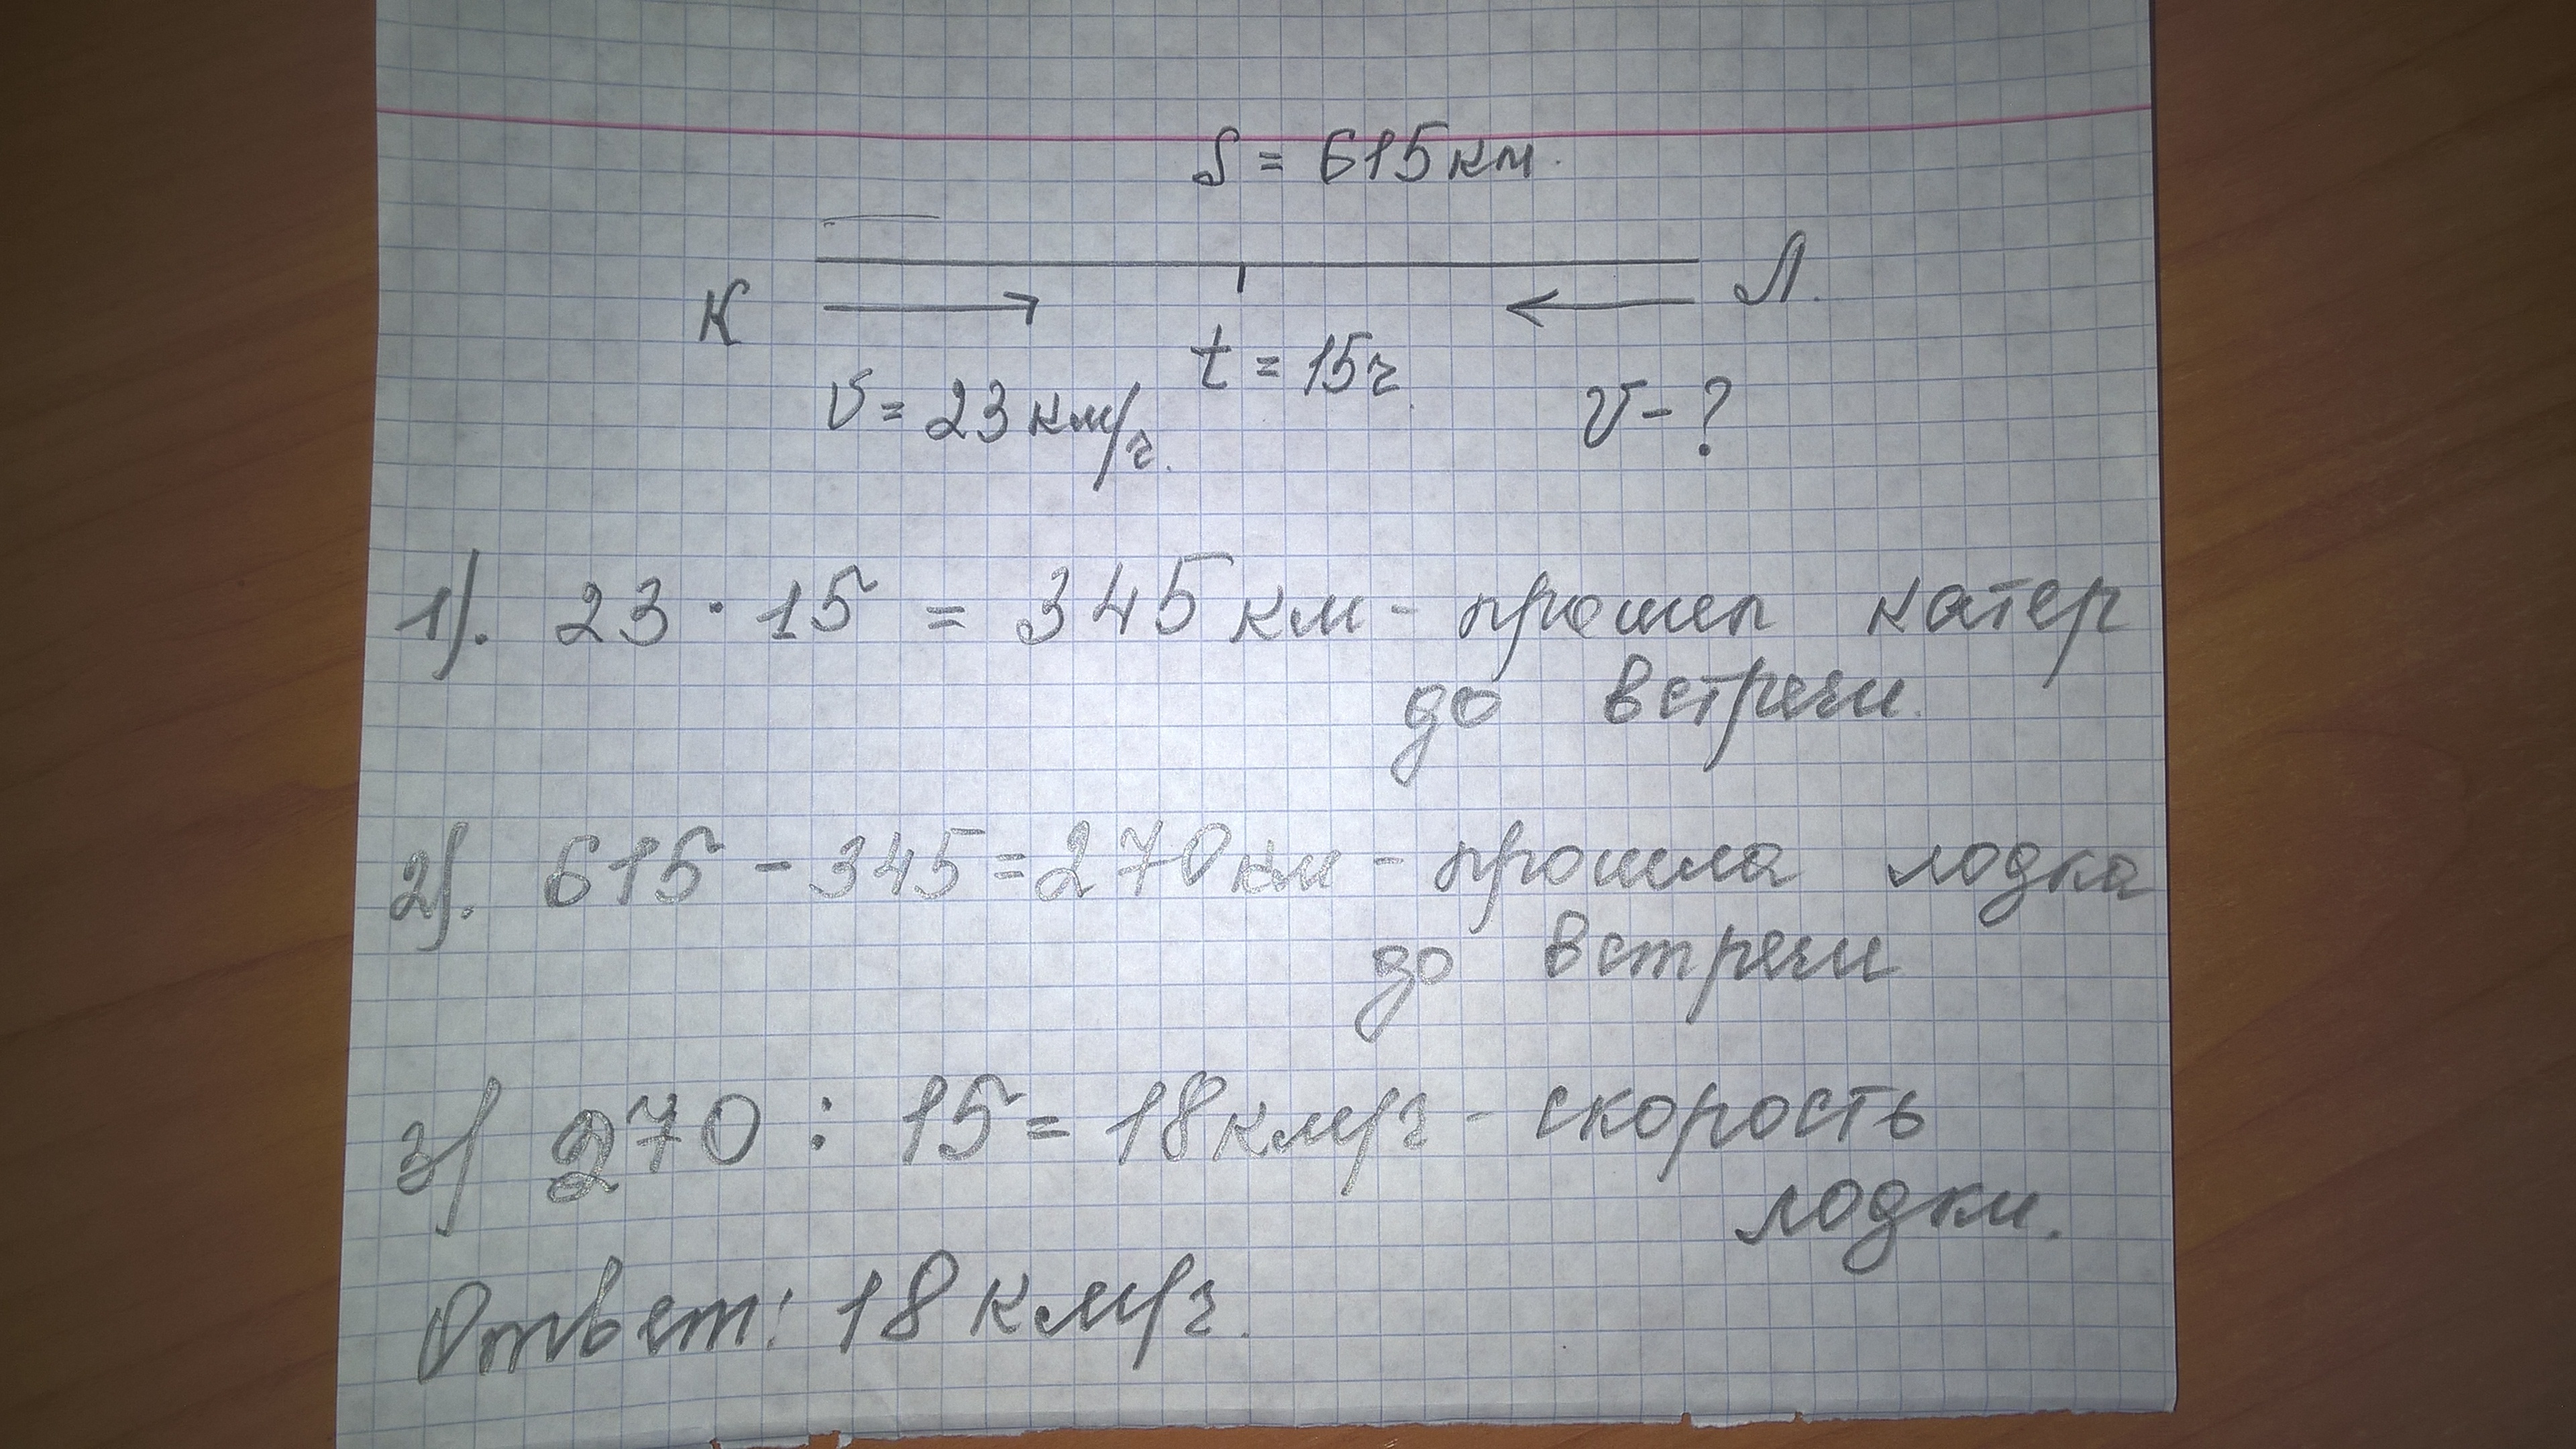 S = 615 км.
К
Л.
V = 23 км/ч.
t = 15ч.
V - ?
1). 23 · 15 = 345 км - прошел катер
до встречи.
2). 615 - 345 = 270 км - прошла лодка
до встречи
3) 270 : 15 = 18 км/ч - скорость
лодки.
Ответ: 18 км/ч.